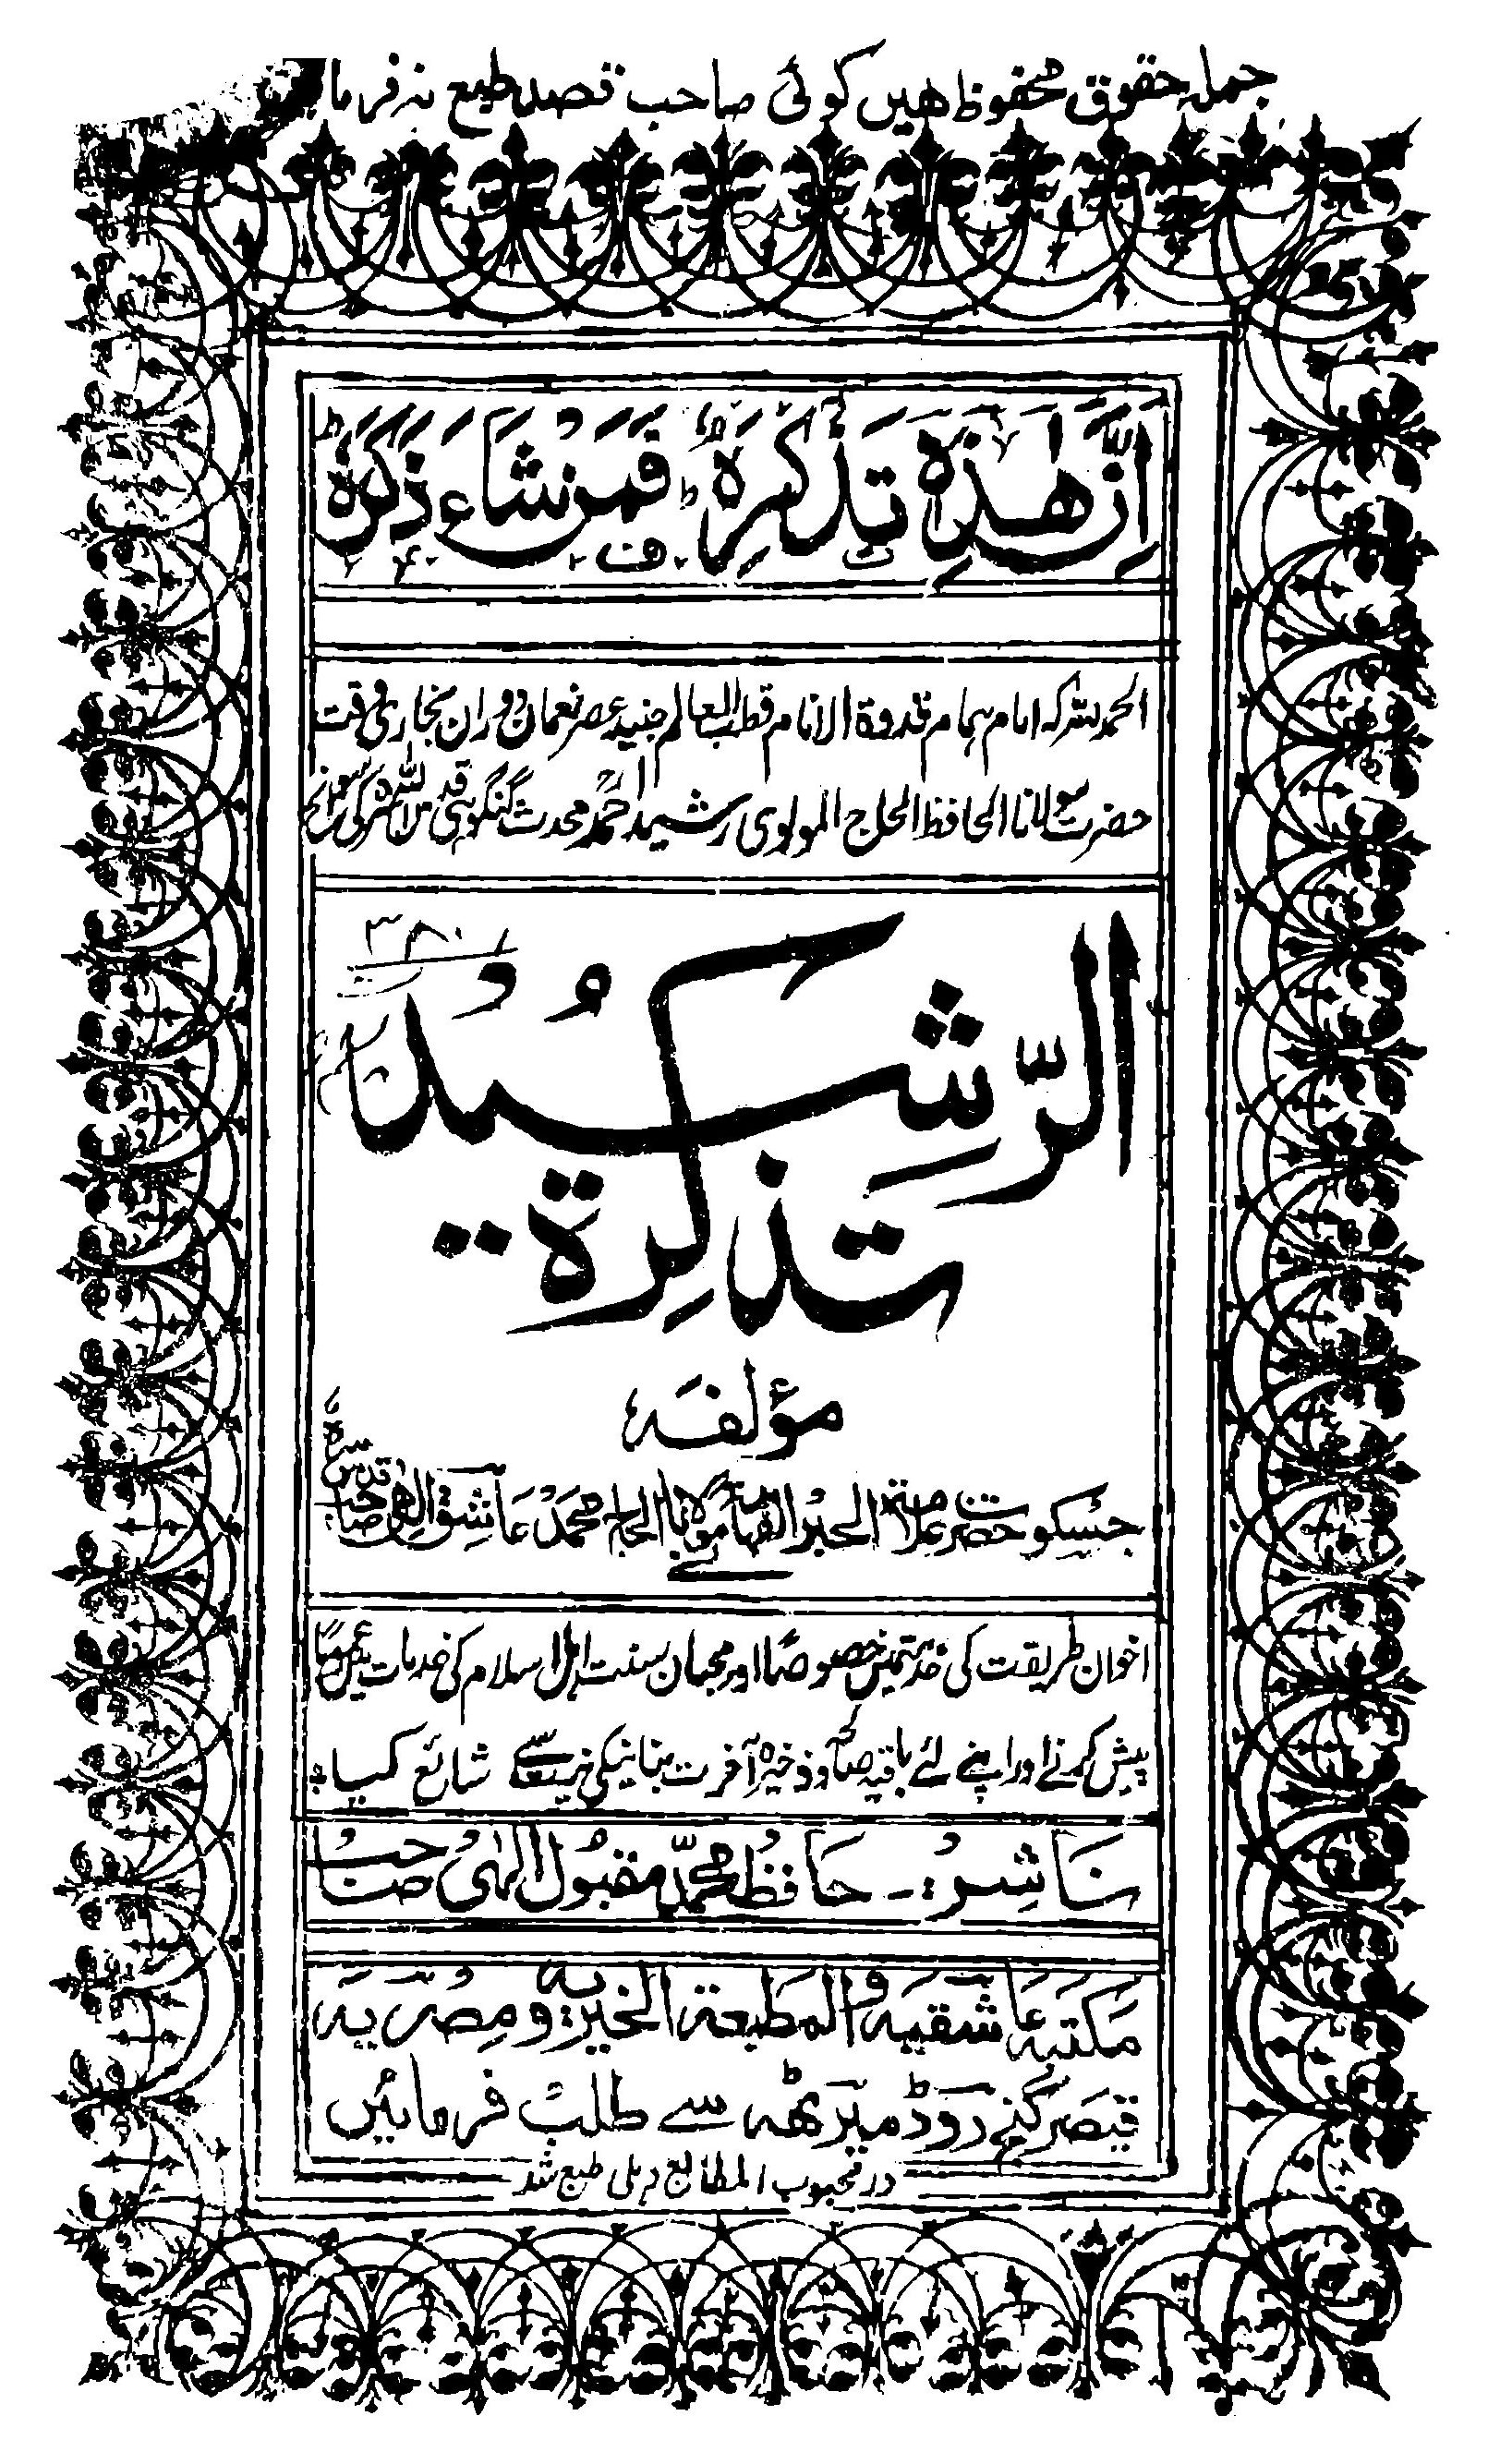 جملہ حقوق محفوظ ھیں کوئی صاحب قصد طبع نہ فرما
اِنَّ هٰذِهٖ تَذْكِرَةٌ ۚ فَمَنْ شَاءَ ذَكَرَهٗ
الحمد للہ کہ امام ہمام قدوۃ الانام قطب العالم جنید عصر نعمان دوران بخاری وقت
حضرت مولانا الحافظ الحاج المولوی رشید احمد محدث گنگوہی قدس اللہ سرہ کی سوانح
۳۸۰۱
تذکرۃ الرشید
مؤلفہ
جسکو حضرت علامۃ الحبر الفہامۃ مولانا الحاج محمد عاشق الٰہی صاحب قدس سرہٗ
نے
اخوان طریقت کی خدمتمیں خصوصًا اور محبان سنت اہل اسلام کی خدمات میں عمومًا
پیش کرنے اور اپنے لئے باقیہ صالحہ و ذخیرہ آخرت بنانیکی نیت سے شائع کیا
ناشر:۔ حافظ محمد مقبول الٰہی صاحب
مکتبہ عاشقیہ و المطبعۃ الخیریہ و مصریہ
قیصر گنج روڈ میرٹھ سے طلب فرمائیں
در محبوب المطابع دہلی طبع شد